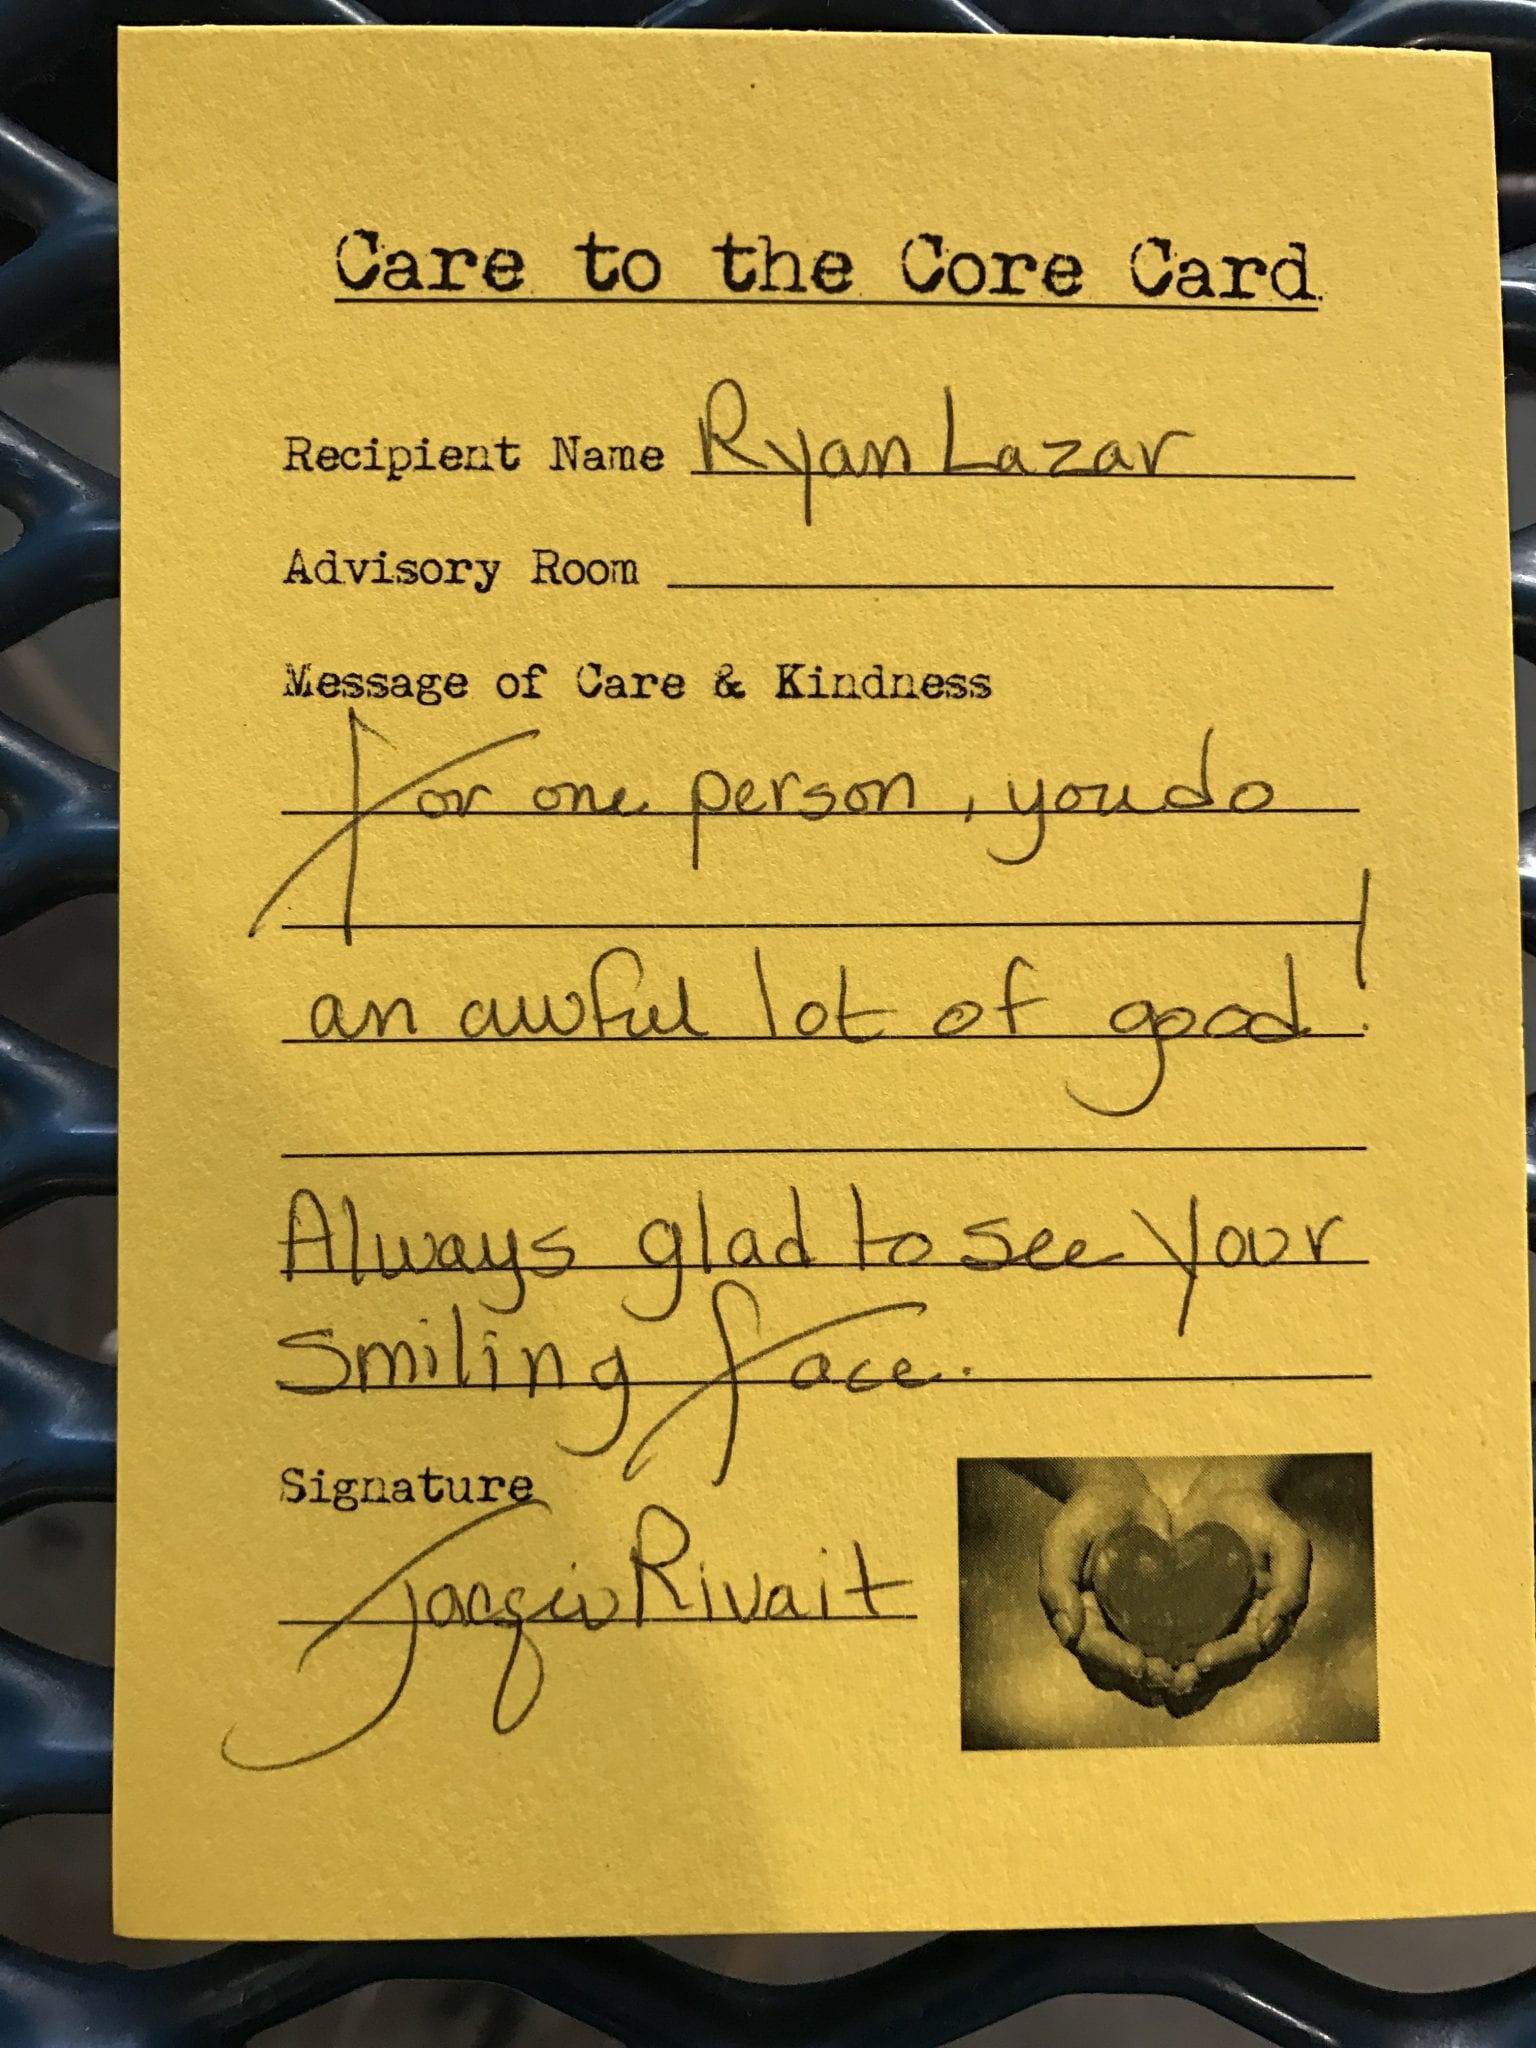 Care to the Core Card
Recipient Name Ryan Lazar
Advisory Room
Message of Care & Kindness
For one person, you do
an awful lot of good!
Always glad to see your
smiling face.
Signature
Jacqui Rivait